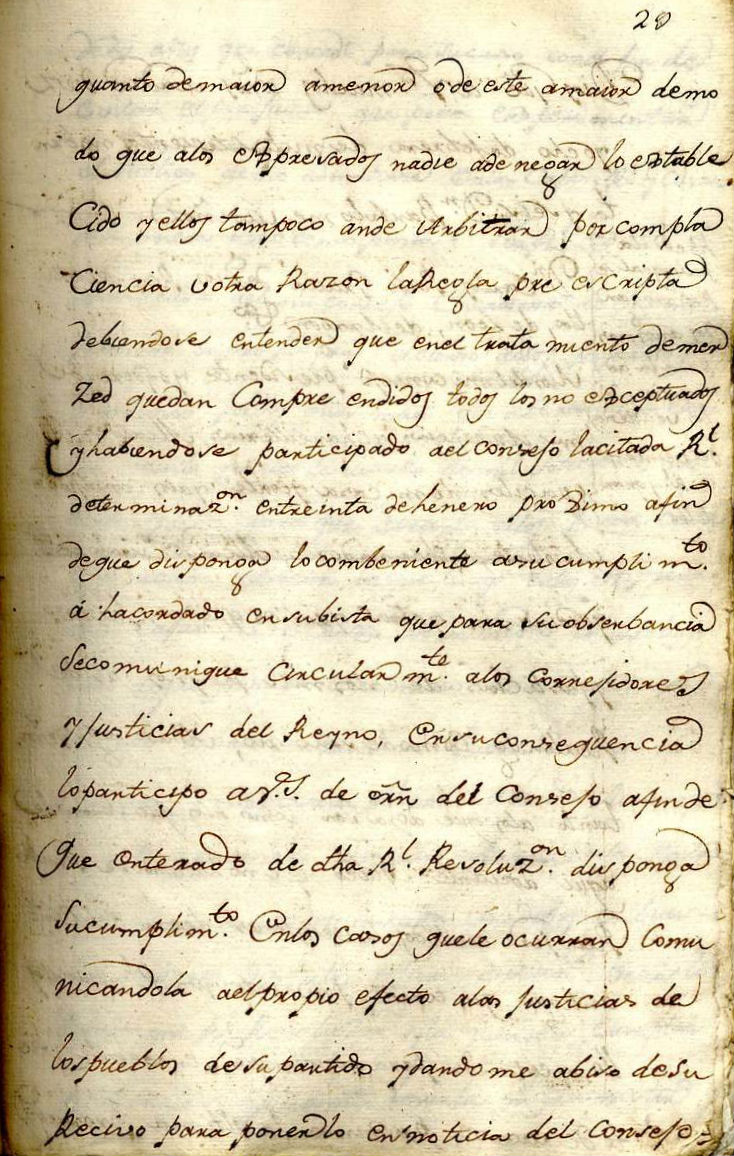 28
quanto demaior amenor o de este amaior demo
do que alos expresados nadie ade negar lo estable
Cido y ellos tampoco ande Arbitrar por compla
Ciencia u otra Razon laRegla pre escripta
debiendose entender que enel trata miento demer
zed quedan Compre endidos todos los no exceptuados
y habiendose participado ael Consejo lacitada Rl.
determinazon. entreinta de henero proximo afin
deque disponga lo combeniente asu cumplimto.
á hacordado ensubista que para su obserbancia
Secomunique Circularmte. alos Correjidores
y Justicias del Reyno, En su consequencia
lo participo a V.S. de orñ del Consejo afinde
Que enterado de dha Rl. Resoluzon. disponga
Sucumplimto. En los casos quele ocurran Comu
nicandola ael propio efecto alas Justicias de
los pueblos de su partido y dandome abiso de su
Recivo para ponerlo en noticia del Consejo=